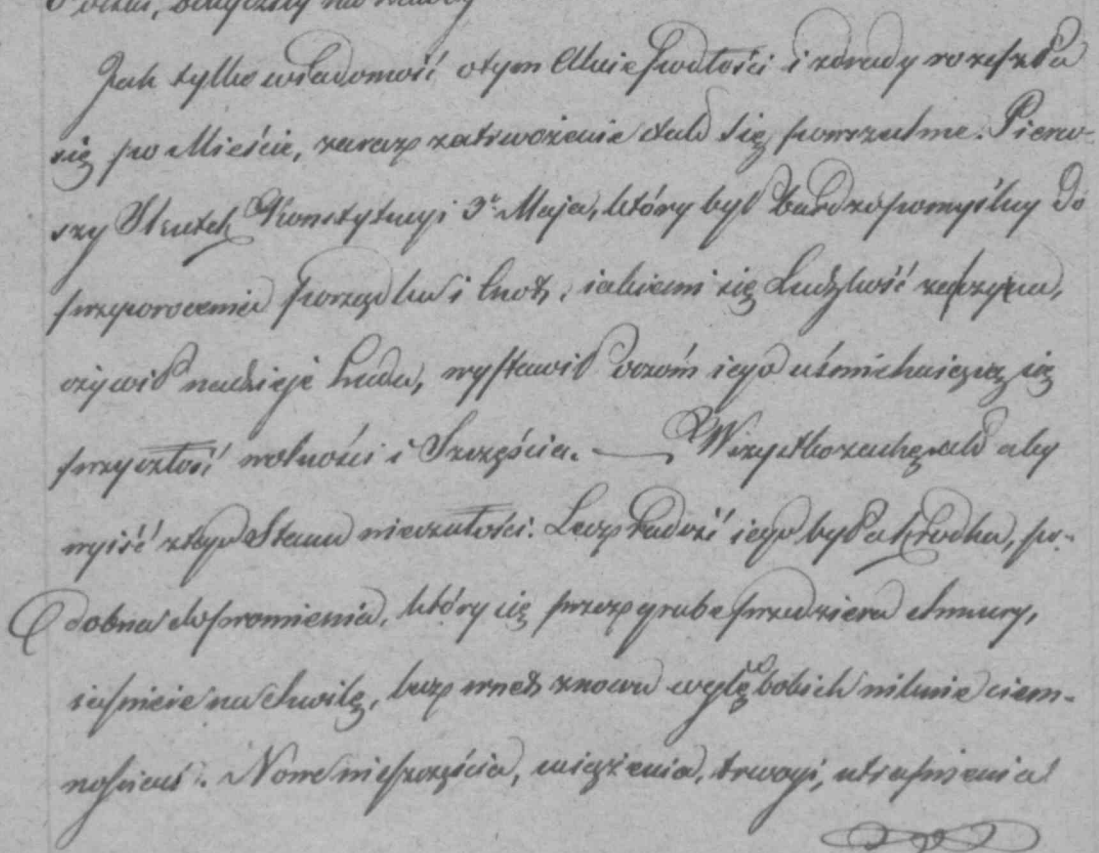 Jak tylko wiadomość otym Akcie podłości i zdrady rozeszła
się po Mieście, zaraz zatrwożenie stało się powszechne. Pierw-
szy Skutek Konstytucyi 3º Maja, który był bardzo pomyślny do
przywrócenia porządku i cnoty, iakiemi się Ludzkość zaszczyca,
ożywił nadzieje Ludu, wystawił oczóm iego uśmiechaiącą się
przyszłość wolności i Szczęścia. — Wszystko zachęcało aby
wyiść ztego Stanu nieczułości. Lecz Radość iego była krótka, po-
dobna do promienia, który się przez grube przedziera chmury,
iaśnieie na chwilę, lecz wnet znowu w głębokich niknie ciem-
nościach. Nowe nieszczęścia, więzienia, trwogi, utrapienia